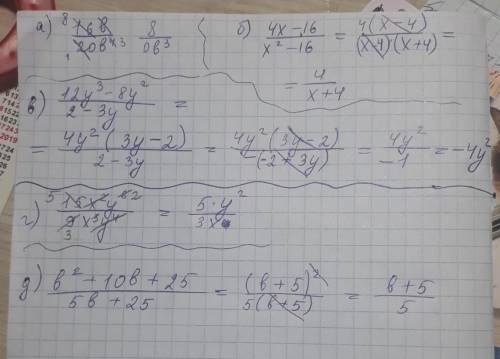 а) 8 16b / 1 20b⁴ ³ 8 / 0b³
б) (4x − 16) / (x² − 16) = 4(x − 4) / ((x−4)(x+4)) =
= 4 / (x+4)
в) (12y³ − 8y²) / (2 − 3y) =
= 4y²(3y − 2) / (2 − 3y) = 4y²(3y − 2) / −(−2 + 3y) = 4y² / −1 = −4y²
г) 5 15x²y⁶ ² / 3 9x³y⁴ = 5·y² / 3x
д) (b² + 10b + 25) / (5b + 25) = (b + 5)² / 5(b+5) = (b+5) / 5